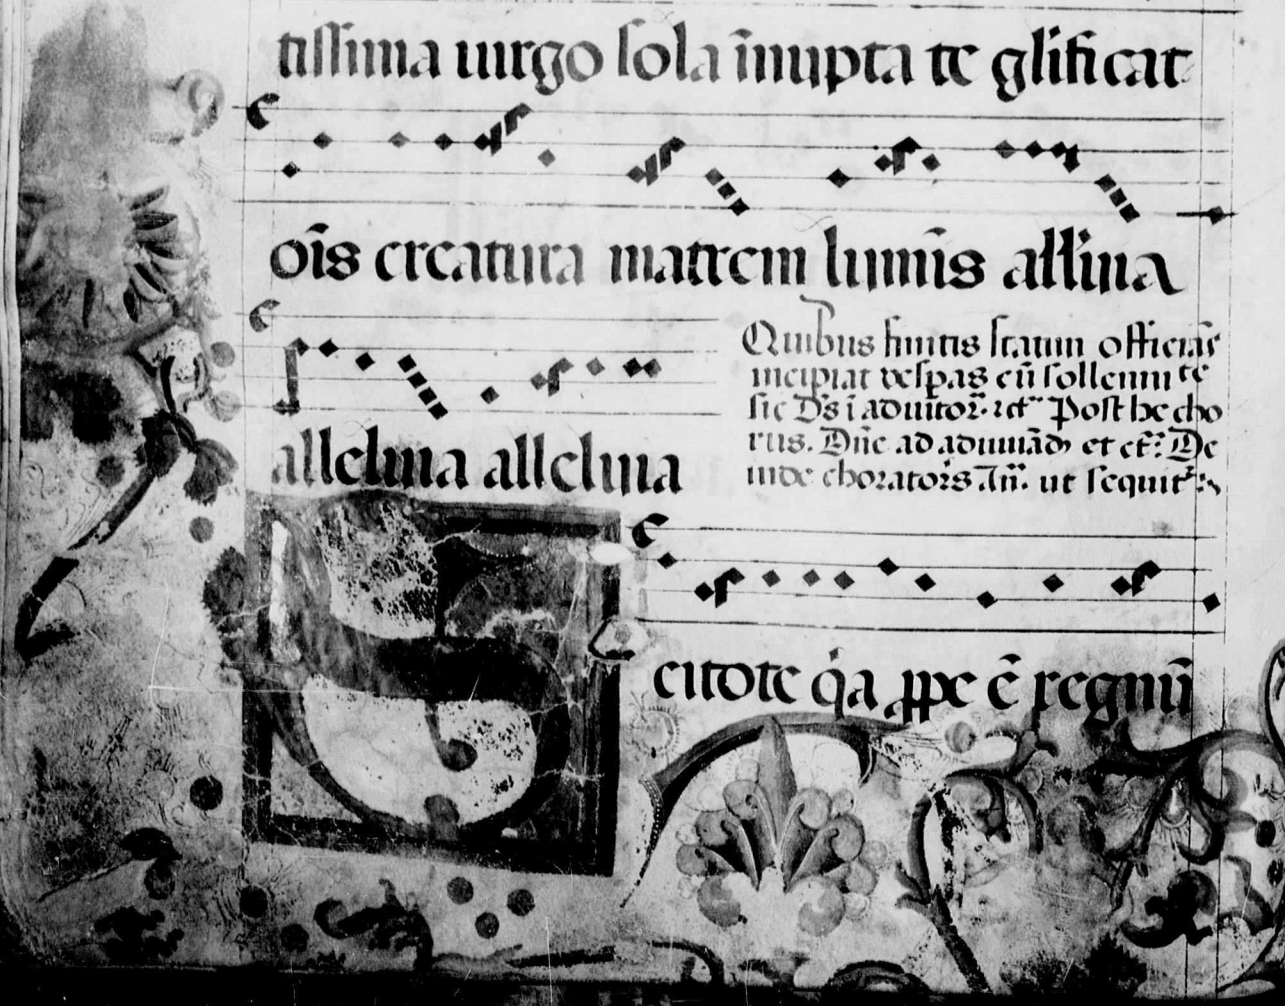 tissima uirgo sola īnupta te gl̄ificat
oīs creatura matrem lumīs all̄ina
alleluia alleluia
Quibus finitis statim officiās
incipiat vespas cū sollenni te
sic Ds ī aduitor̄. ⁊ct̄ Post hc cho
rus. Dn̄e ad adiuuād et ct̄: De
inde chorators In̄. ut sequit̄:
Scitote q̇a ꝓpe ē regnū